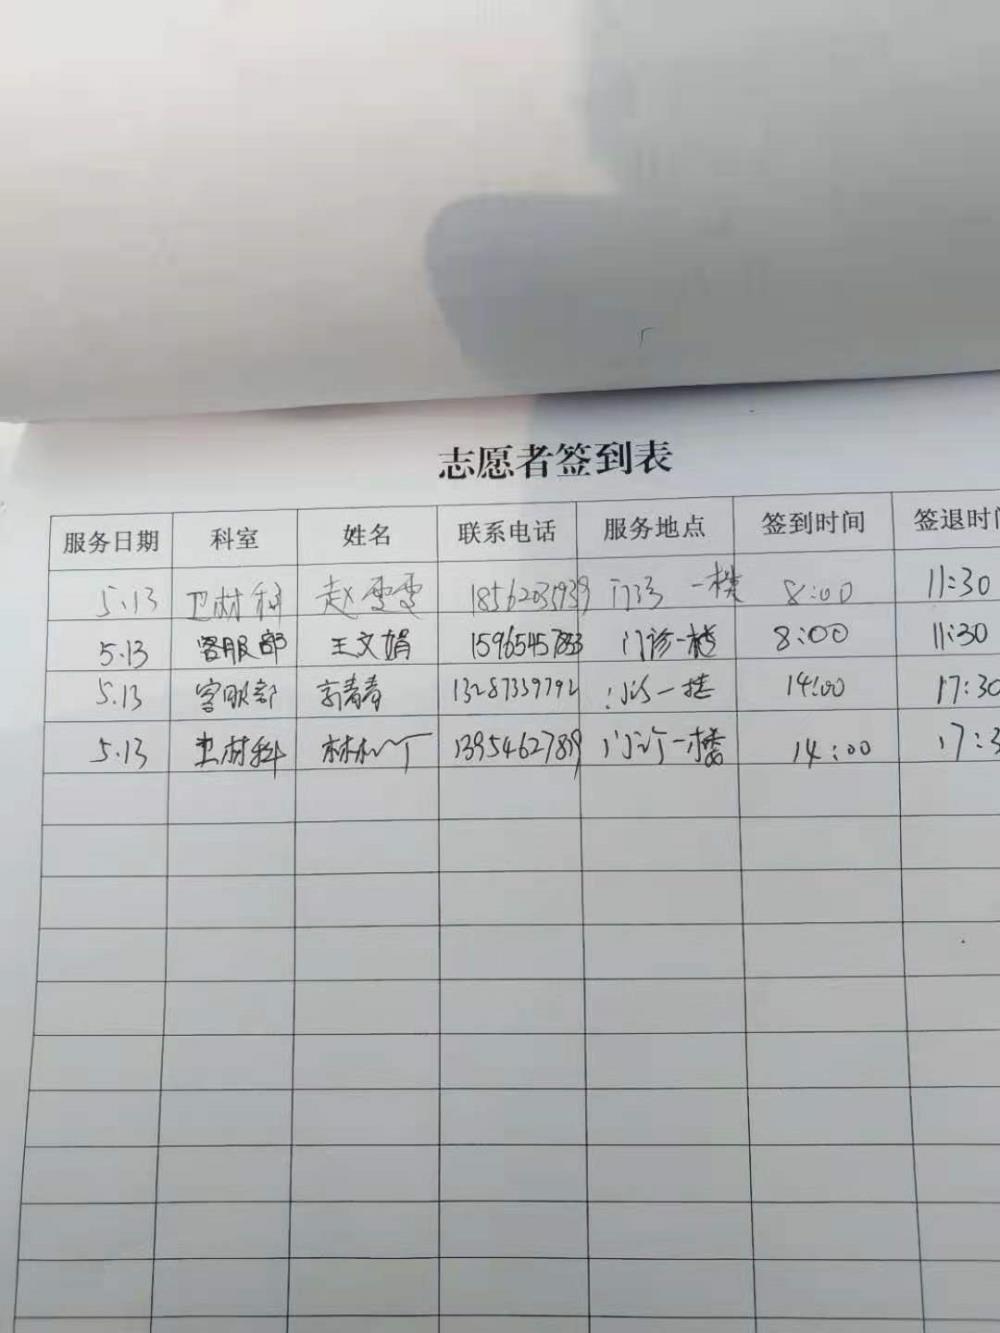 志愿者签到表
服务日期 科室 姓名 联系电话 服务地点 签到时间 签退时
5.13 卫材科 赵雪雪 门诊一楼 8:00 11:30
5.13 客服部 王文娟 门诊一楼 8:00 11:30
5.13 客服部 郭青青 13287339792 一楼 14:00 17:30
5.13 卫材科 林 门诊一楼 14:00 17:3